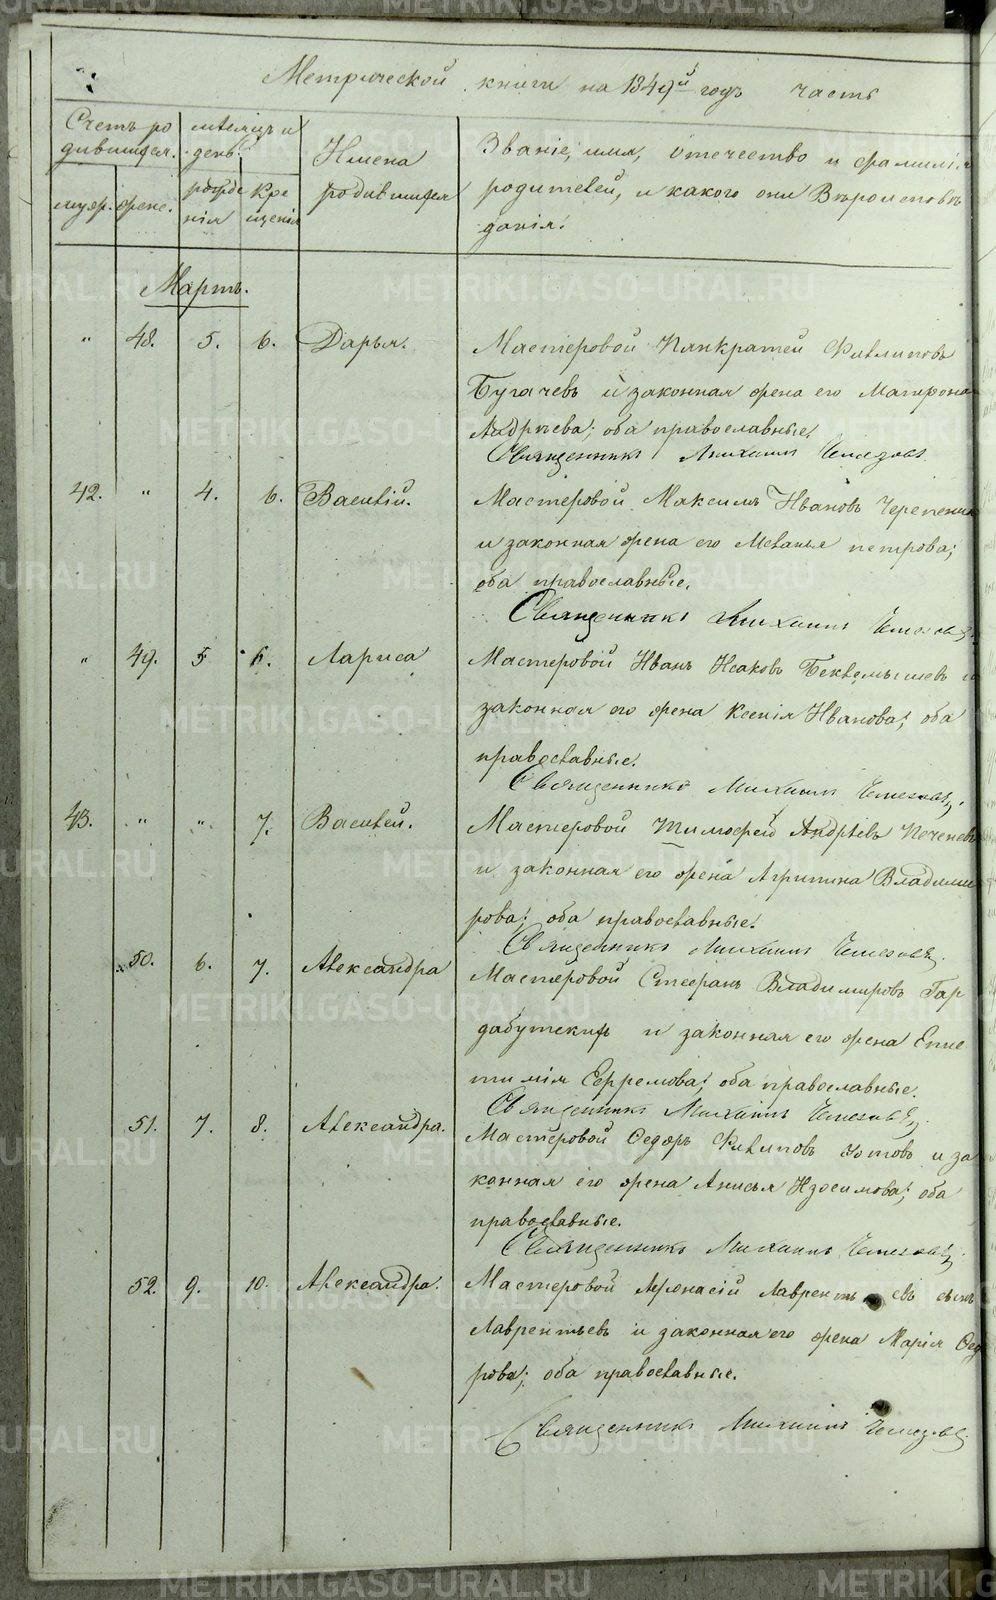 Метрической книги на 1849й годъ часть
Счетъ ро
дившихся.
муж. жене.
месяцъ и
день.
рожде
нія
Кре
щенія
Имена
родившихся
Званіе, имя, отечество и фамилія
родителей, и какого они Вероисповѣ
данія.
Мартъ.
" 48. 5. 6. Дарья.
Мастеровой Панкратей Филиповъ
Бугачевъ и законная жена его Матрона
Андреева; оба православные.
Священникъ Михаилъ
42. " 4. 6. Василій.
Мастеровой Максимъ Ивановъ Черепенин
и законная жена его Меланья петрова;
оба православные.
Священникъ Михаилъ
" 49. 5 6. Лариса
Мастеровой Иванъ Исаковъ Беклемышевъ и
законная его жена Ксенія Иванова; оба
православные.
Священникъ Михаилъ
43. " " 7. Василей.
Мастеровой Тимофей Андреевъ Печеневъ
и законная его жена Агрипина Владими
рова; оба православные.
Священникъ Михаилъ
50. 6. 7. Александра
Мастеровой Стефанъ Владимировъ Гар
и законная его жена Епис
тимія Ефремова; оба православные.
Священникъ Михаилъ
51. 7. 8. Александра.
Мастеровой Федоръ Филиповъ и за
конная его жена Анисья Изосимова; оба
православные.
Священникъ Михаилъ
52. 9. 10. Александра.
Мастеровой Афонасій Лаврентьевъ сынъ
Лаврентьевъ и законная его жена Марія Федо
рова; оба православные.
Священникъ Михаилъ
METRIKI.GASO-URAL.RU